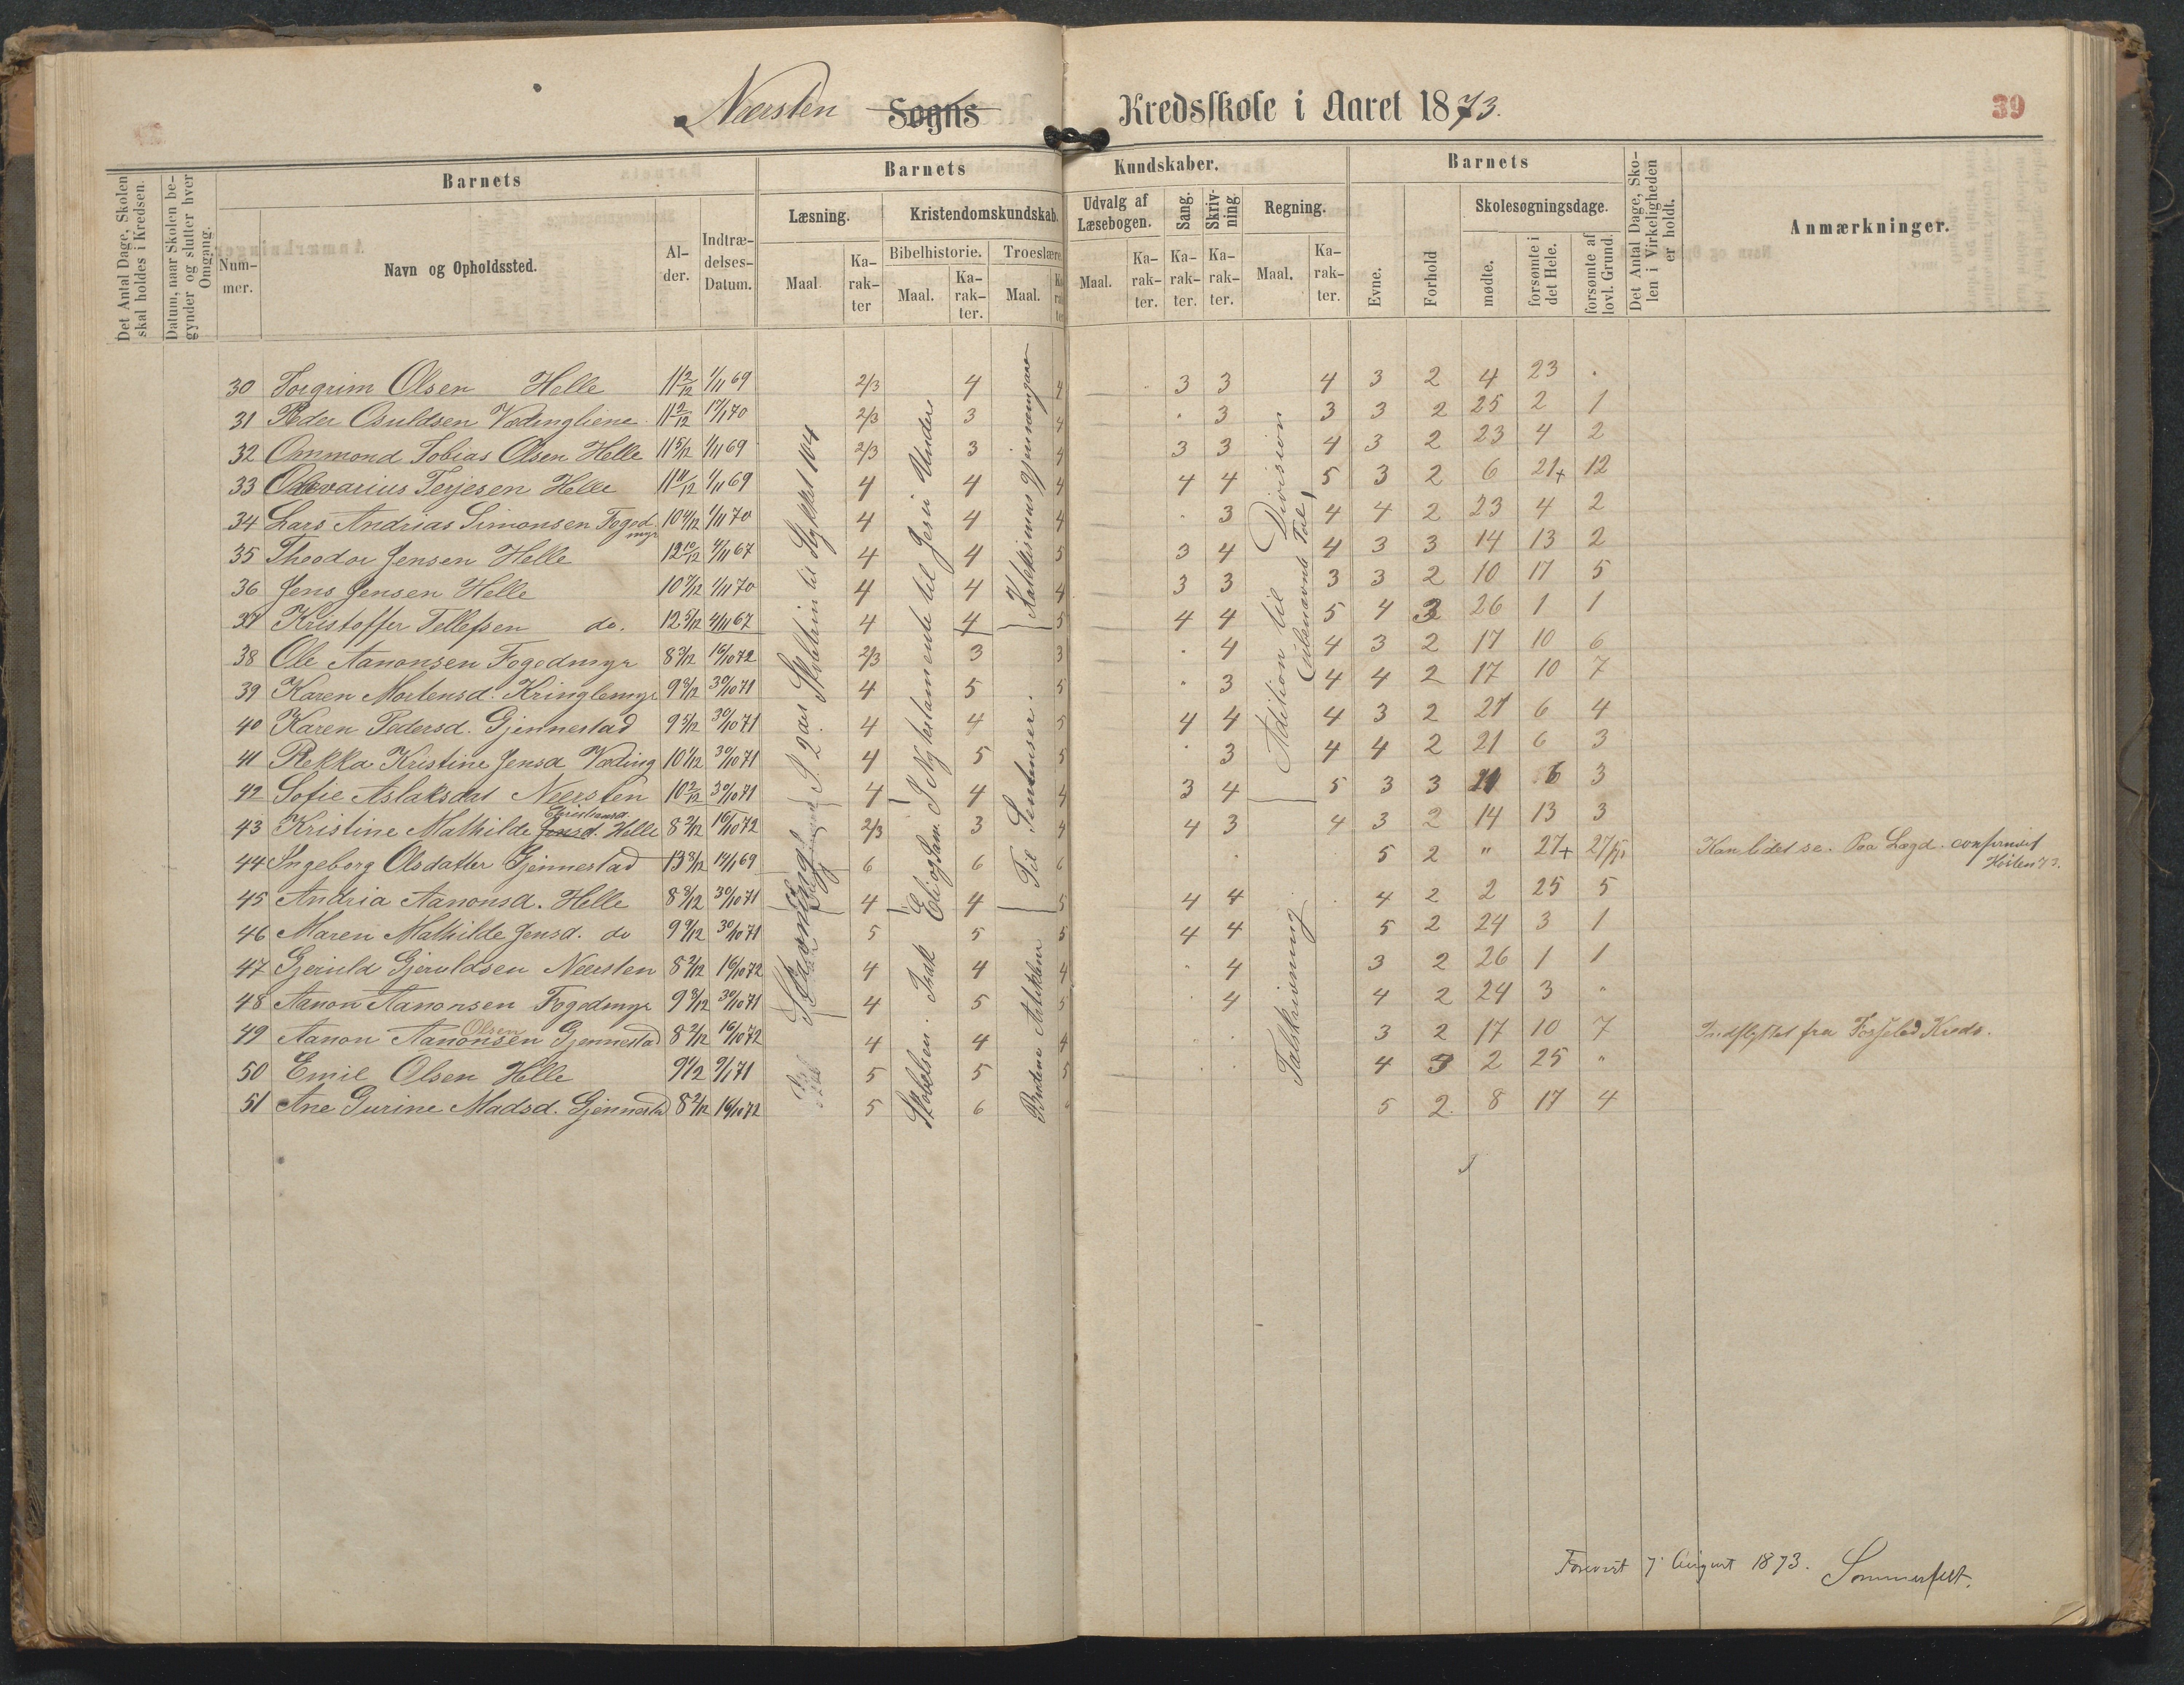 Nærsten Sogns Kredsskole i Aaret 1873.
39
Det Antal Dage, Skolen skal holdes i Kredsen.
Datum, naar Skolen begynder og slutter hver Omgang.
Barnets
Nummer.
Navn og Opholdssted.
Alder.
Indtrædelses-Datum.
Barnets Kundskaber.
Læsning.
Maal
Karakter
Kristendomskundskab.
Bibelhistorie.
Maal.
Karakter.
Troeslære.
Maal.
Karakter
Udvalg af Læsebogen.
Maal.
Karakter.
Sang.
Karakter.
Skrivning
Karakter.
Regning.
Maal.
Karakter.
Barnets
Evne.
Forhold
Skolesøgningsdage.
mødte.
forsømte i det Hele.
forsømte af lovl. Grund.
Det Antal Dage, Skolen i Virkeligheden er holdt.
Anmærkninger.
30 Torgrim Olsen Helle 11 2/12 1/11 69 2/3 4 4 3 3 4 3 2 4 23 .
31 Peder Osuldsen Vædingliene 11 9/12 17/1 70 2/3 3 4 . 3 3 3 2 25 2 1
32 Ommond Tobias Olsen Helle 11 5/12 1/11 69 2/3 3 4 3 3 4 3 2 23 4 2
33 Olevarius Terjesen Helle 11 11/12 1/11 69 4 4 4 4 4 5 3 2 6 21+ 12
34 Lars Andrias Simonsen Fogedmyr 10 4/12 1/11 70 4 4 4 . 3 4 4 2 23 4 2
35 Theodor Jensen Helle 12 10/12 4/11 67 4 4 5 3 4 4 3 3 14 13 2
36 Jens Jensen Helle 10 7/12 1/11 70 4 4 4 3 3 3 3 2 10 17 5
37 Kristoffer Tellefsen do. 12 5/12 4/11 67 4 4 5 4 4 5 4 3 26 1 1
38 Ole Aanonsen Fogedmyr 8 3/12 16/10 72 2/3 3 3 . 4 4 3 2 17 10 6
39 Karen Mortensd. Kringlemyr 9 8/12 30/10 71 4 5 5 . 3 4 4 2 17 10 7
40 Karen Pedersd. Gjennestad 9 5/12 30/10 71 4 4 5 4 4 4 3 2 21 6 4
41 Rekka Kristine Jensd Væding 10 1/12 30/10 71 4 5 5 . 3 4 4 2 21 6 3
42 Sofie Aslaksdat Neersten 10 2/12 30/10 71 4 4 4 3 4 5 3 3 21 6 3
43 Kristine Mathilde Jensd. Christiansd. Helle 8 2/12 16/10 72 2/3 3 4 4 3 4 3 2 14 13 3
44 Ingeborg Olsdatter Gjennestad 13 3/12 14/1 69 6 6 6 . 5 2 " 27+ 27 Kan lidet se. Paa Lægd. confirmeret Høsten 73.
45 Andria Aanonsd. Helle 8 3/12 30/10 71 4 4 5 4 4 . 4 2 2 25 5
46 Maren Mathilde Jensd. do 9 9/12 30/10 71 5 5 5 4 4 5 2 24 3 1
47 Gjeruld Gjeruldsen Neersten 8 2/12 16/10 72 4 4 4 . 4 3 2 26 1 1
48 Aanon Aanonsen Fogedmyr 9 8/12 30/10 71 4 5 5 . 4 4 2 24 3 "
49 Aanon Aanonsen Olsen Gjennestad 8 2/12 16/10 72 4 4 4 . . 3 2 17 10 7 Indflyttet fra Kreds.
50 Emil Olsen Helle 9 1/12 9/1 71 5 5 5 . . 4 3 2 25 "
51 Ane Gurine Madsd. Gjennestad 8 2/12 16/10 72 5 6 5 2 8 17 4
I. 2det Skoletrin til Stykket 104
Stavning
I Nytestamente til Jesu Under
Eli og Sam.
Skabelsen. Isak
Katekismus gjennemgaaet
Til Sentenser.
Budene Artiklene
Adition til Division
(ubenævnte Tal)
Talskrivning
Forevist 7 August 1873. Sommerfelt.